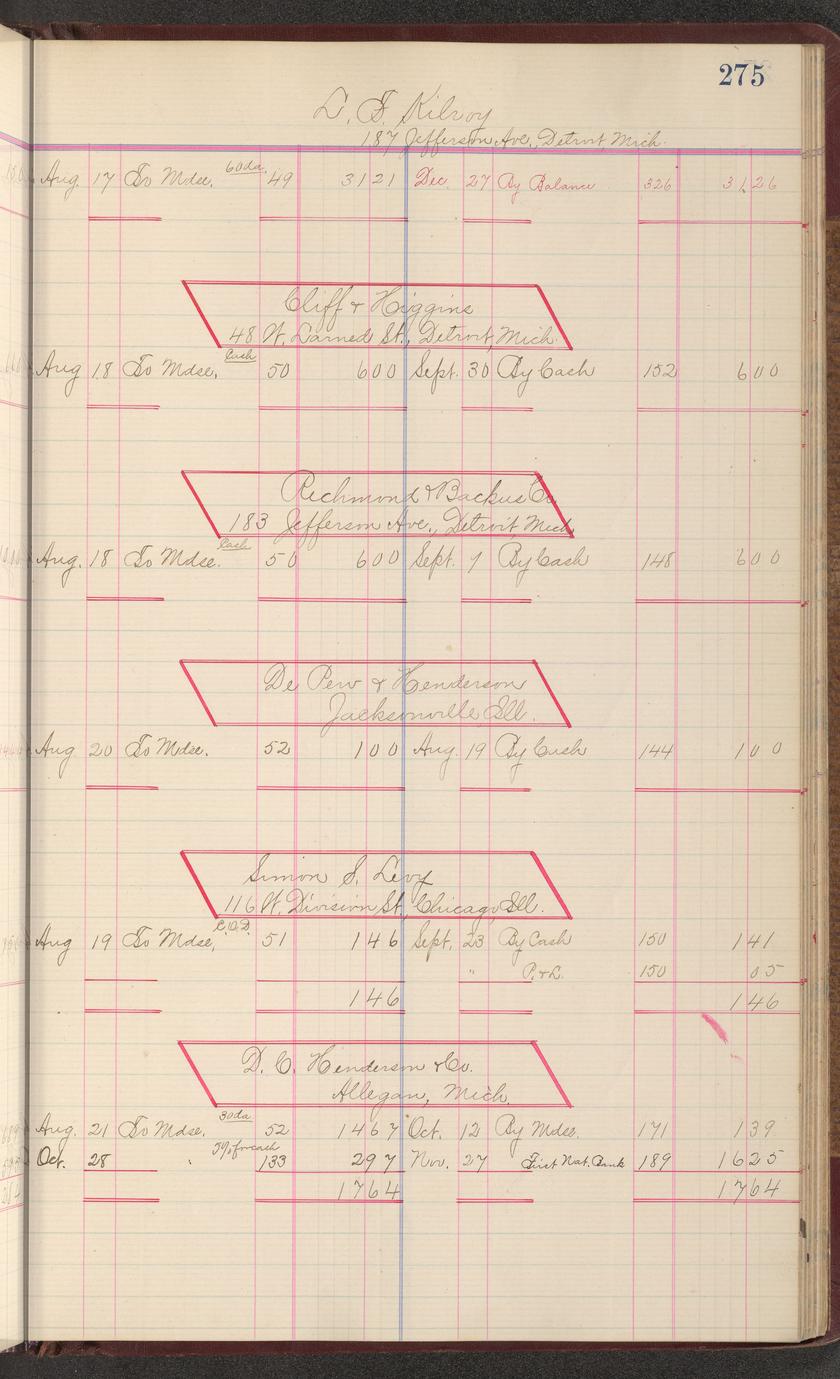 275
L. F. Kilroy
187 Jefferson Ave., Detroit, Mich.
Aug. 17 To Mdse. 60 da. 49 3121 Dec. 27 By Balance 326 3126
Cliff & Higgins
48 W. Larned St., Detroit, Mich.
Aug 18 To Mdse. Cash 50 600 Sept. 30 By Cash 152 600
Richmond & Backus Co
183 Jefferson Ave., Detroit, Mich
Aug. 18 To Mdse. Cash 50 600 Sept. 7 By Cash 148 600
De Pew & Henderson
Jacksonville, Ill.
Aug 20 To Mdse. 52 100 Aug. 19 By Cash 144 100
Simon S. Levy
116 W. Division St., Chicago, Ill.
Aug 19 To Mdse, C.O.D. 51 146 Sept. 23 By Cash 150 141
" P. & L. 150 05
146 146
D. C. Henderson & Co.
Allegan, Mich.
Aug. 21 To Mdse. 30 da 52 1467 Oct. 12 By Mdse. 171 139
Oct. 28 " 5% for cash 133 297 Nov. 27 First Nat. Bank 189 1625
1764 1764